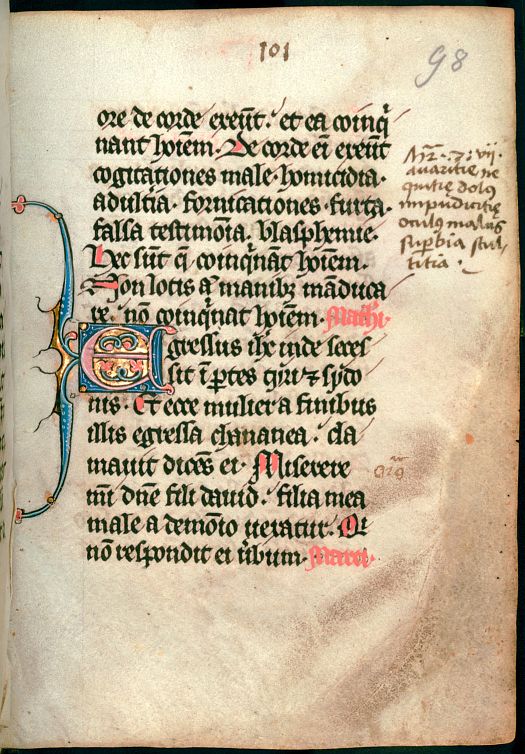 101
98
ore de corde exeūt. et ea coinq̄
nant hoīem. De corde eī exeūt
cogitationes male. homicidia.
adultīa. fornicationes. furta.
falsa testimonīa. blasphemie.
Hec sūt q̄ coinq̄nāt hoīem.
Non lotis aū manibꝫ māduca
re. nō coinq̄nat hoīem. Mathī.
Egressus ih̄c inde seces
sit ī ꝑtes tẏri ⁊ sẏdo
nis. Et ecce mulier a finibus
illis egressa chananea. cla
mauit dicēs ei. Miserere
m̄i dn̄e fili dauid. filia mea
male a demōīo uexatur. Qī
nō respondit ei ūbum. Marci.
Mr̄. 7. vij.
auaritie ne
quitie dolꝰ
impudicitie
oculꝰ malus
supbia stul
titia.